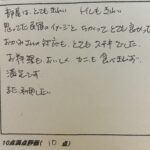 部屋は、とてもきれい トイレもきれい
思ってた民宿のイメージと ちがって とても良かった
おかみさんの対応も、とても ステキでした。
お料理も おいしく カニも 食べ
満足です
また 利用したい
10点満点評価！( 10 点)